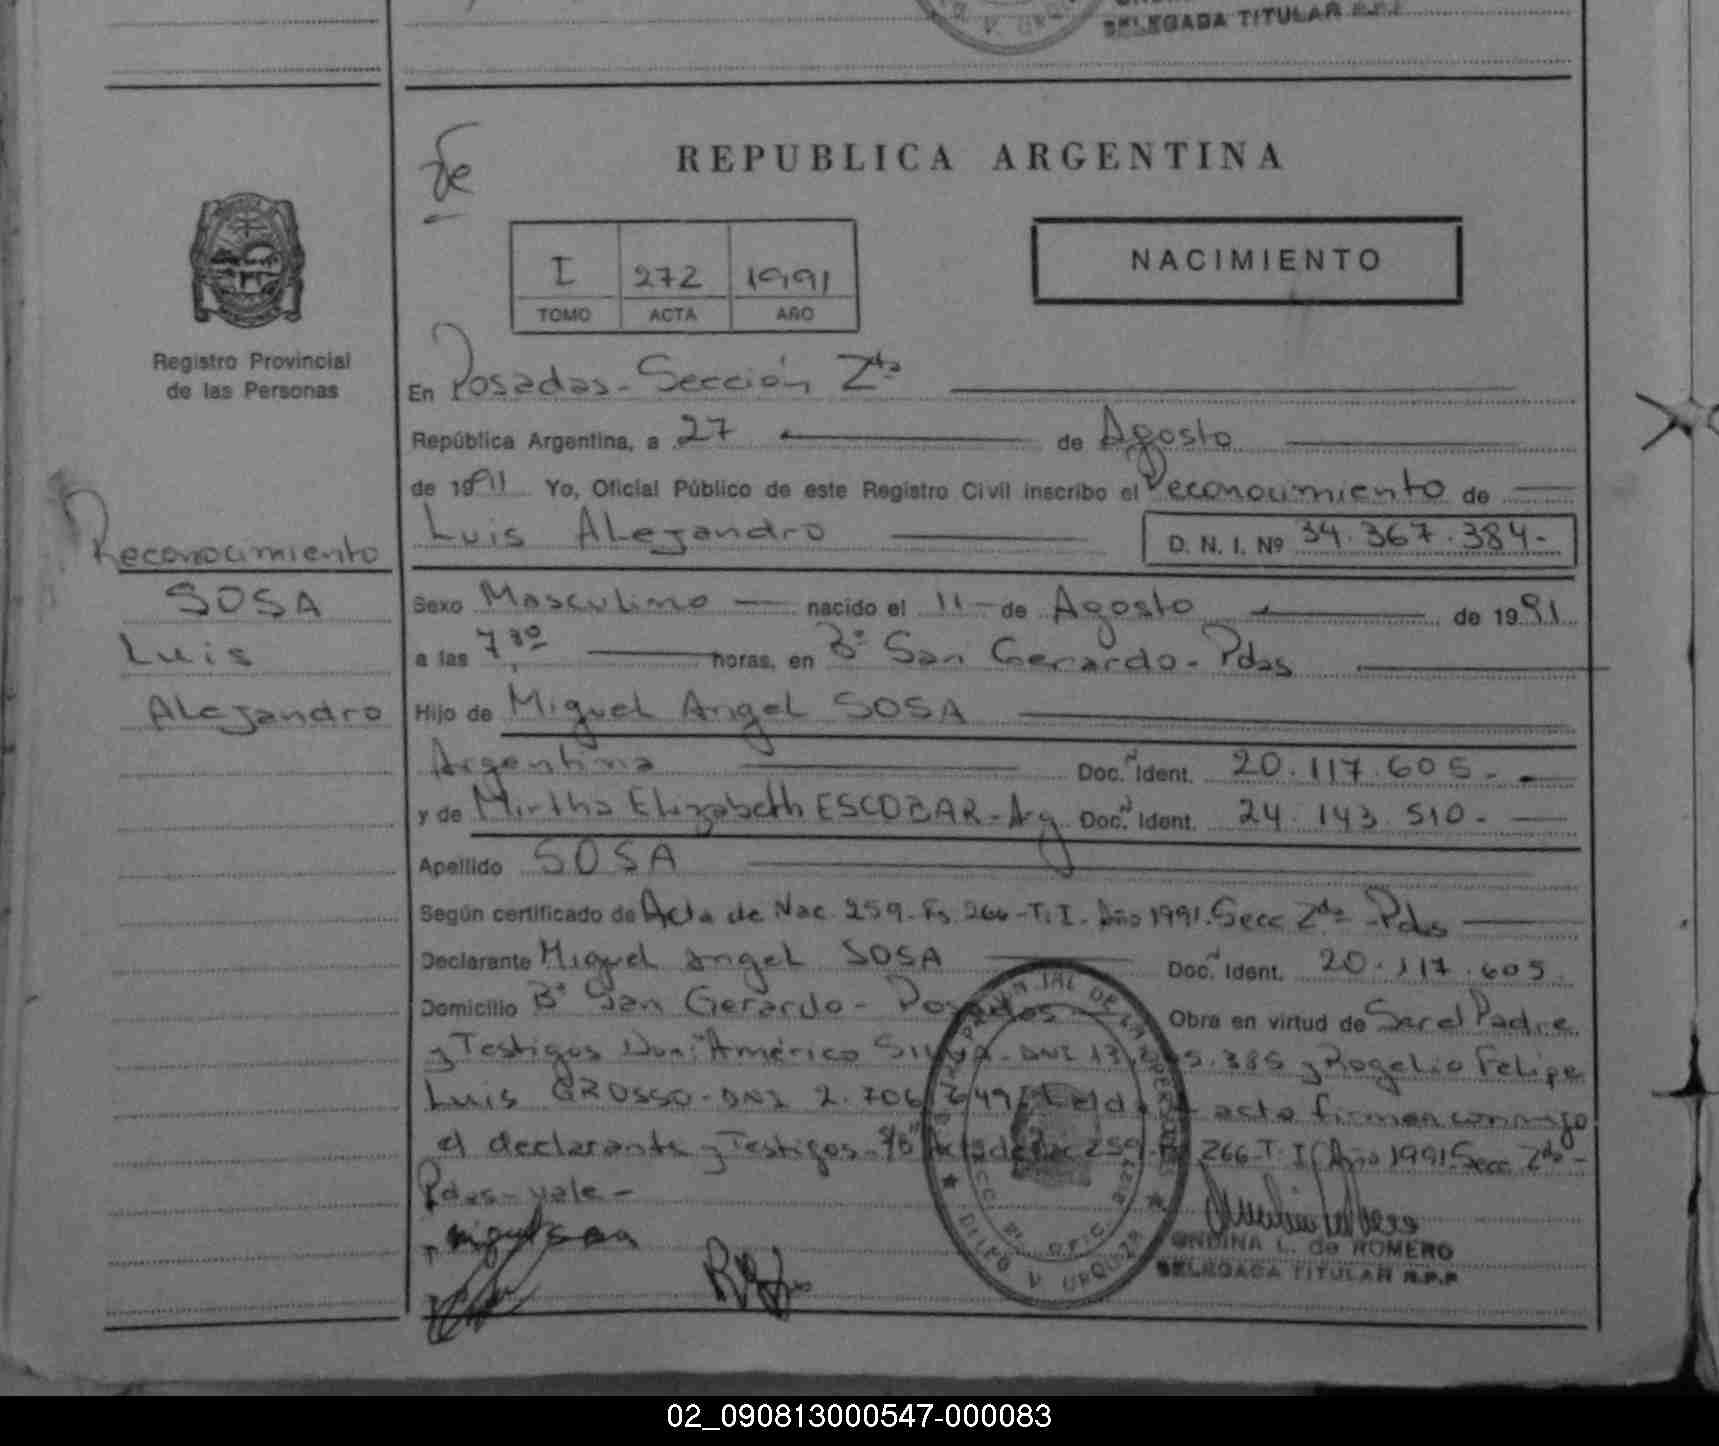 DELEGADA TITULAR R.P.P.
REPUBLICA ARGENTINA
I 272 1991
TOMO ACTA AÑO
NACIMIENTO
Registro Provincial
de las Personas
En Posadas - Sección 2da
República Argentina, a 27 de Agosto
de 1991 Yo, Oficial Público de este Registro Civil inscribo el Reconocimiento de
Luis Alejandro D. N. I. Nº 34.367.384.-
Reconocimiento
SOSA
Luis
Alejandro
Sexo Masculino nacido el 11 de Agosto de 1991
a las 7,30 horas, en Bº San Gerardo - Pdas
Hijo de Miguel Angel SOSA
Argentina Doc. N Ident. 20.117.605.-
y de Mirtha Elizabeth ESCOBAR - Arg. Doc. N Ident. 24.143.510.-
Apellido SOSA
Según certificado de Acta de Nac. 259 - Fs. 266 - T. I - Año 1991. Secc 2da - Pdas
Declarante Miguel Angel SOSA Doc. N Ident. 20.117.605.
Domicilio Bº San Gerardo - Posadas Obra en virtud de Ser el Padre
y Testigos Don: Américo - DNI 13 .385 y Rogelio Felipe
Luis GROSSO - DNI 2.706.649 acta firman conmigo
el declarante y Testigos - Acta de Nac 259 - Fs 266 - T. I (Año 1991. Secc 2da -
Pdas - vale -
Miguel Sosa
ONDINA L. de ROMERO
DELEGADA TITULAR R.P.P.
DELFO V. URQUIZA
02_090813000547-000083